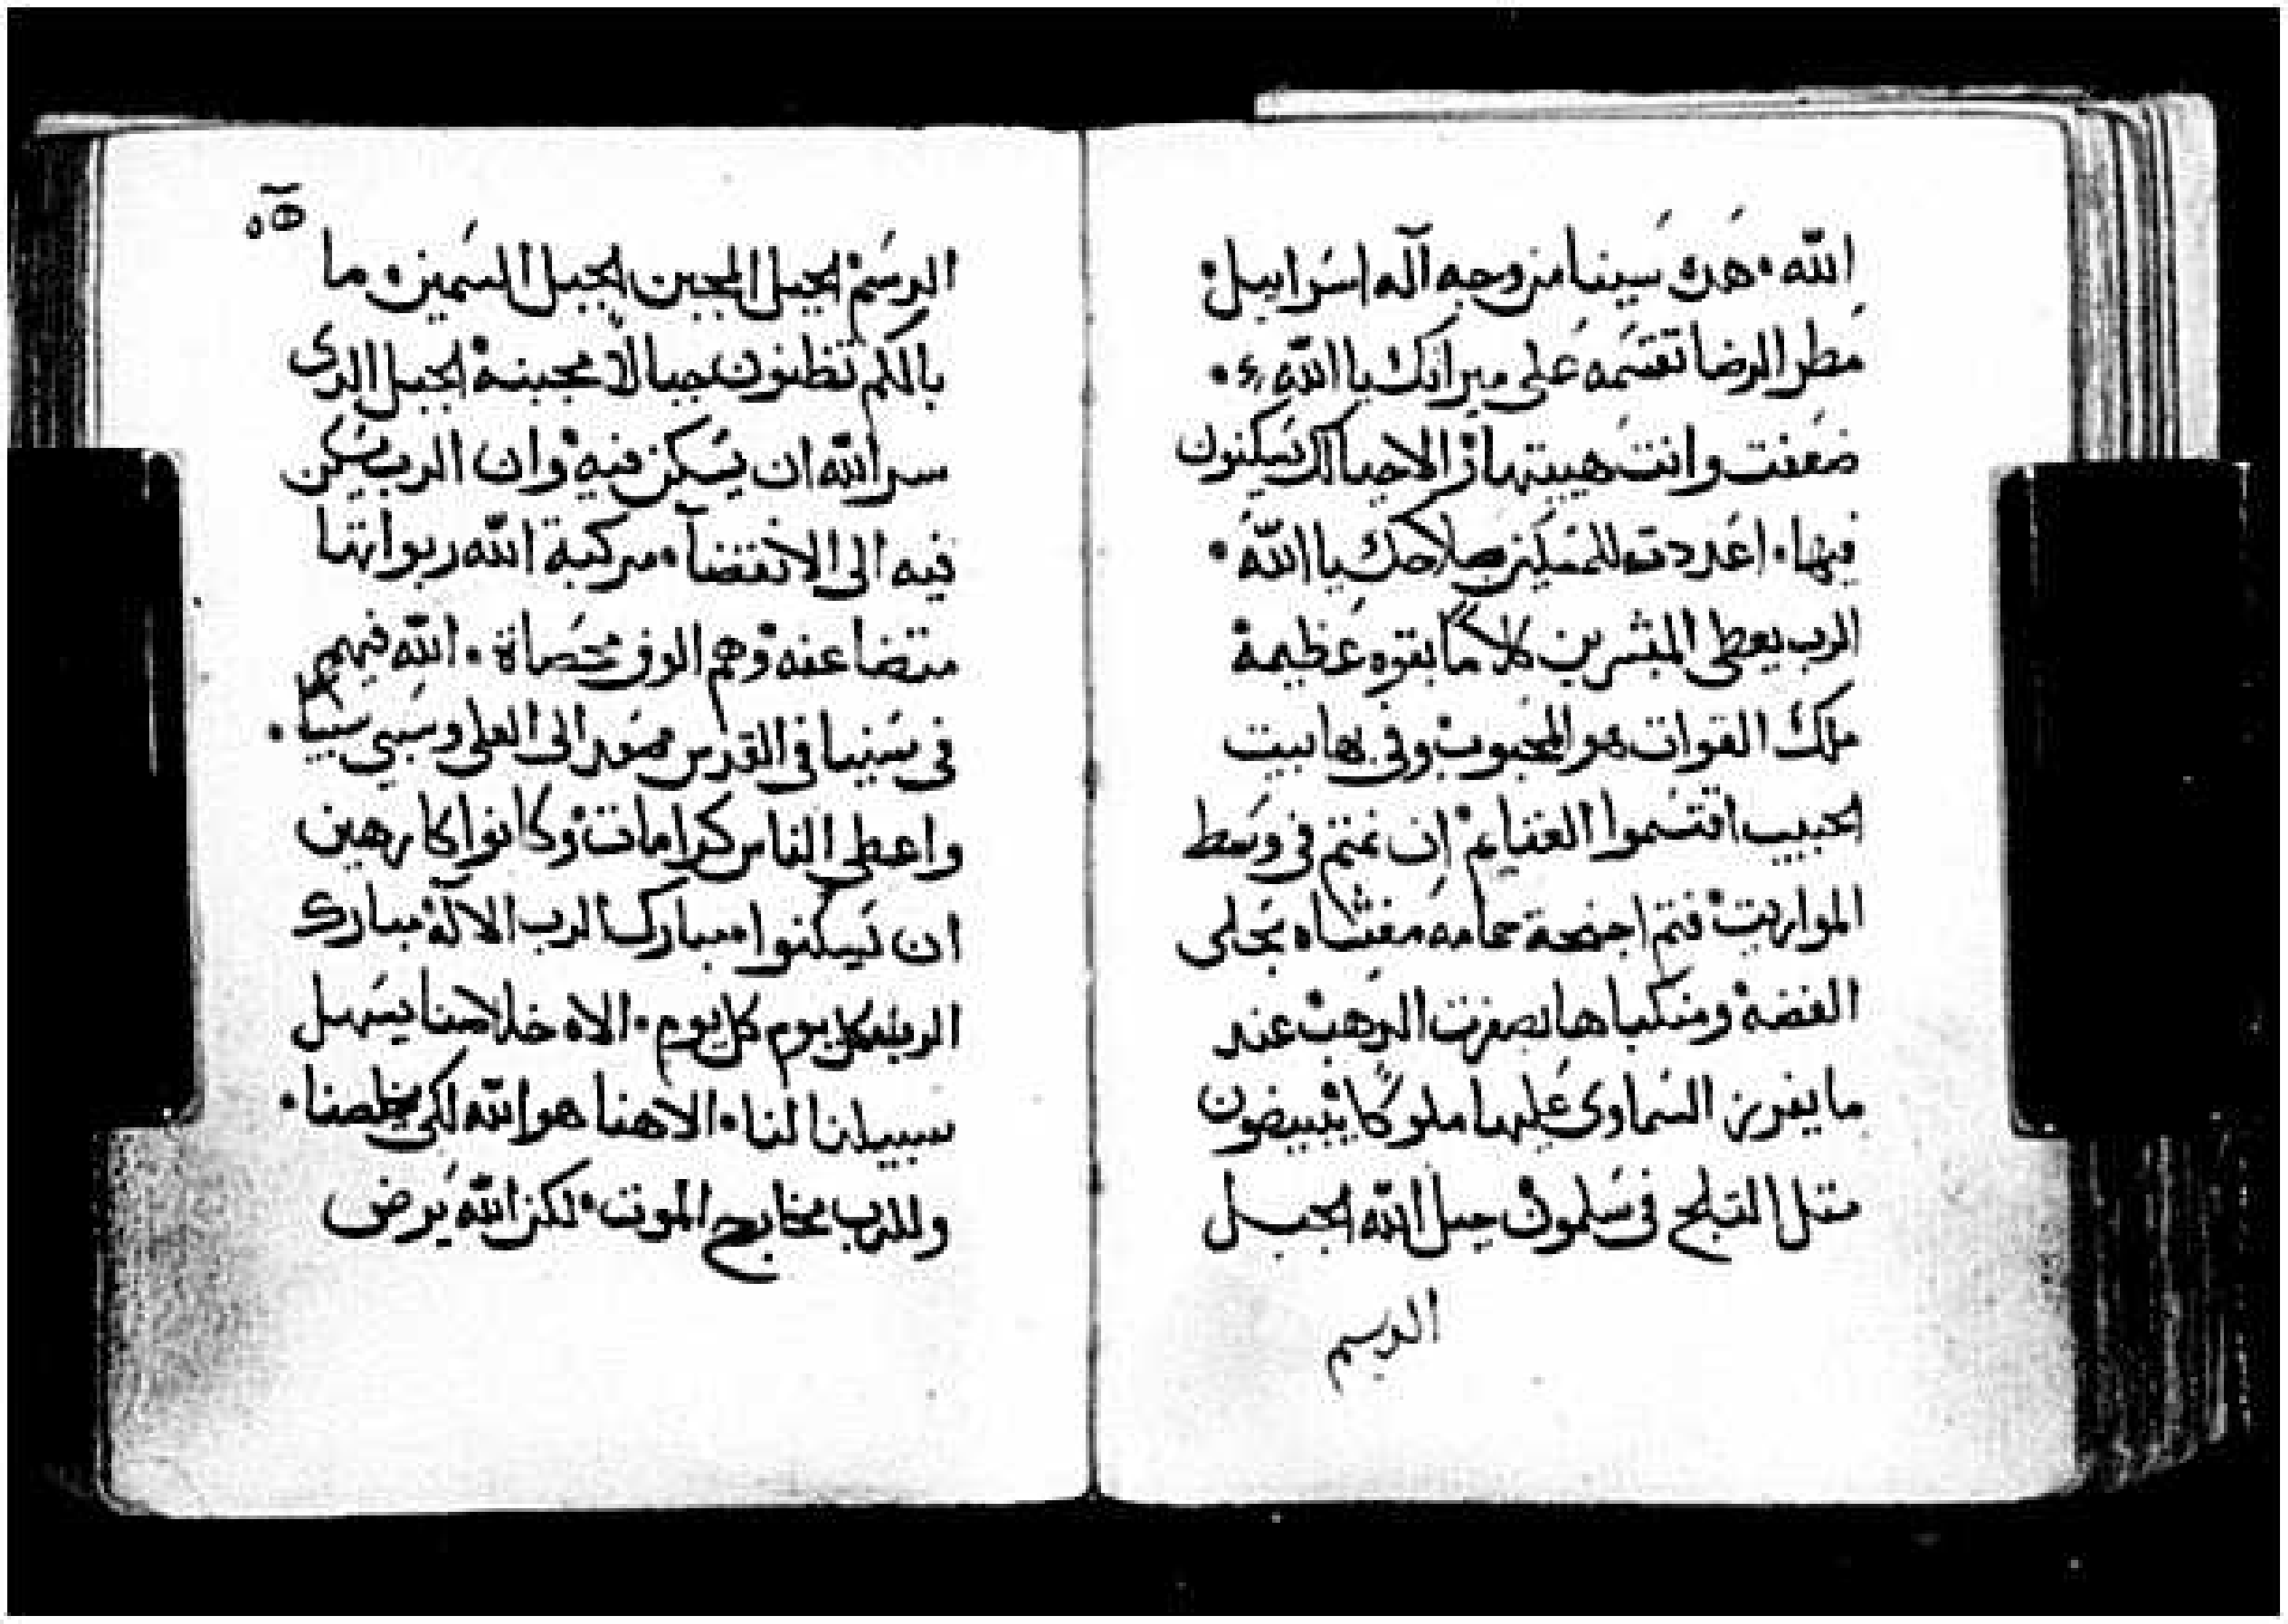 الله. هدن سينا من وجه آله اسراييل.
مطر الرضا تقسمه على ميراثك يا الله.
ضعفت وانت هييتها لان الاحيا لك يسكنون
فيها. اعددت للمسكين بصلاحك يا الله.
الرب يعطي المبشرين كلاما بقوه عظيمة
ملك القوات هو المحبوب وفي بها بيت
الحبيب اقتسموا الغنايم ان نمتم في وسط
المواريت فتم اجنحة حمامه مغشاه بحلى
الفضه ومنكباها بصفرت الدهب عند
ما يفرز السماوى عليها ملوكا يبيضون
متل التلج في سلمون جبل الله الجبل
الدسم
الدسم الجبل المجبن الجبل السمين. ما
بالكم تظنون جبالًا مجبنة الجبل الدى
سر الله ان يسكن فيه وان الرب يسكن
فيه الى الانقضآ. مركبة الله ربواتها
متضاعفه وهم الوف مخصاة. الله فيهم
في سنيا في القدس صعد الى العلى وسبي سبيا.
واعطى الناس كرامات وكانوا كارهين
ان يسكنوا مبارك الرب الالاه مبارك
الرب كل يوم كل يوم. الاه خلاصنا يسهل
سبيلنا لنا. الاهنا هو الله لكي يخلصنا.
وللرب مخارج الموت. لكن الله يرض